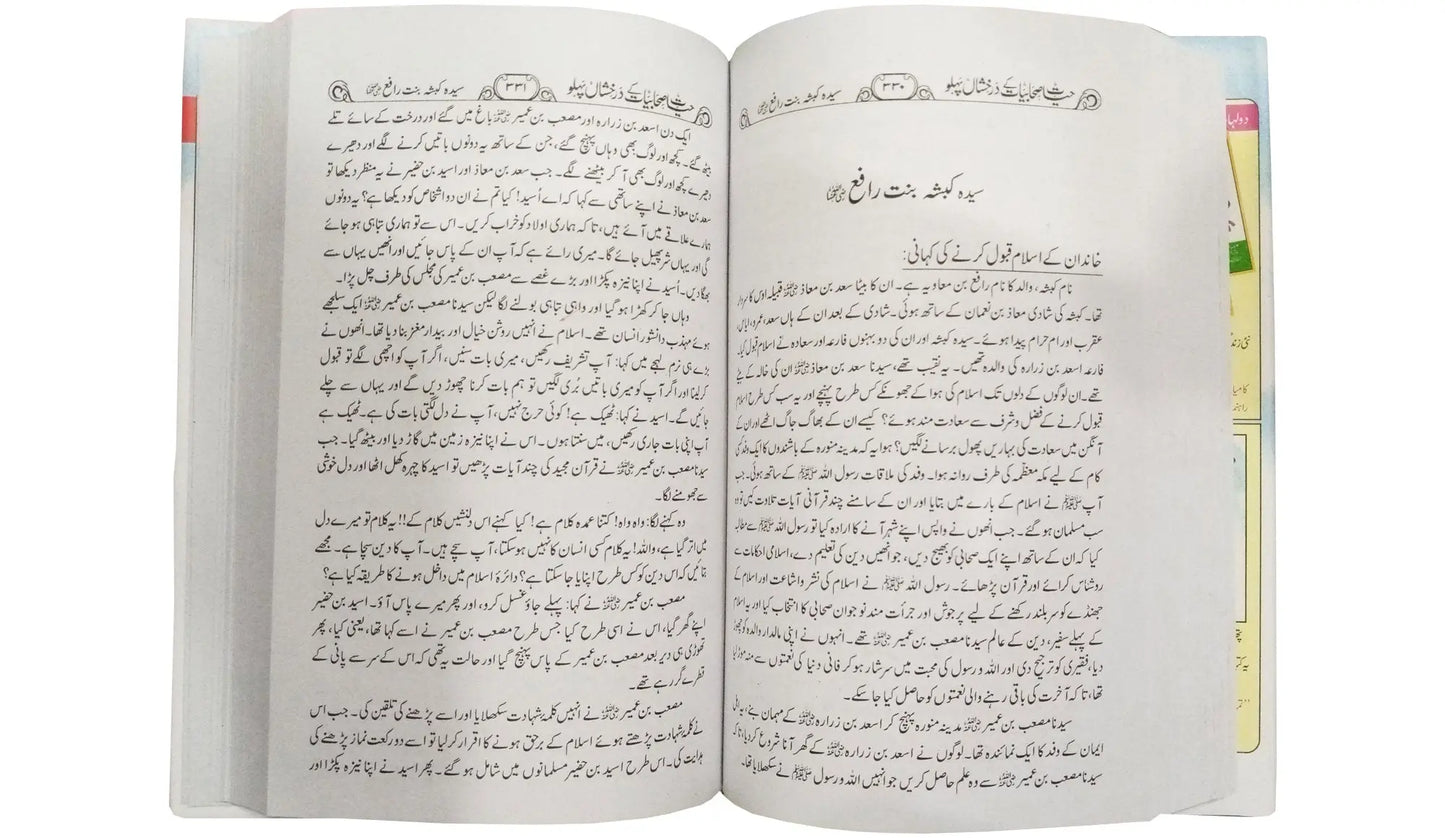 حیاتِ صحابیات کے درخشاں پہلو
۳۳۰
سیدہ کبشہ بنت رافع رضی اللہ عنہا
سیدہ کبشہ بنت رافع رضی اللہ عنہا
خاندان کے اسلام قبول کرنے کی کہانی:
نام کبشہ، والد کا نام رافع بن معاویہ ہے۔ ان کا بیٹا سعد بن معاذ رضی اللہ عنہ قبیلہ اوس کا سردار
تھا۔ کبشہ کی شادی معاذ بن نعمان کے ساتھ ہوئی۔ شادی کے بعد ان کے ہاں سعد، عمرو، ایاس،
عقرب اور ام حرام پیدا ہوئے۔ سیدہ کبشہ اور ان کی دو بہنوں فارعہ اور سعادہ نے اسلام قبول کیا۔
فارعہ اسعد بن زرارہ کی والدہ تھیں۔ یہ نقیب تھے، سیدنا سعد بن معاذ رضی اللہ عنہ ان کی خالہ کے بیٹے
تھے۔ ان لوگوں کے دلوں تک اسلام کی ہوا کے جھونکے کس طرح پہنچے اور یہ سب کس طرح اسلام
قبول کرنے کے فضل و شرف سے سعادت مند ہوئے؟ کیسے ان کے بھاگ جاگ اٹھے اور ان کے
آنگن میں سعادت کی بہاریں پھول برسانے لگیں؟ ہوا یہ کہ مدینہ منورہ کے باشندوں کا ایک وفد کسی
کام کے لیے مکہ معظمہ کی طرف روانہ ہوا۔ وفد کی ملاقات رسول اللہ ﷺ کے ساتھ ہوئی۔ جب
آپ ﷺ نے اسلام کے بارے میں بتایا اور ان کے سامنے چند قرآنی آیات تلاوت کیں تو وہ
سب مسلمان ہو گئے۔ جب انھوں نے واپس اپنے شہر آنے کا ارادہ کیا تو رسول اللہ ﷺ سے مطالبہ
کیا کہ ان کے ساتھ اپنے ایک صحابی کو بھیج دیں، جو انھیں دین کی تعلیم دے، اسلامی احکامات سے
روشناس کرائے اور قرآن پڑھائے۔ رسول اللہ ﷺ نے اسلام کی نشر و اشاعت اور اسلام کے
جھنڈے کو سربلند رکھنے کے لیے پرجوش اور جرأت مند نوجوان صحابی کا انتخاب کیا اور یہ اسلام
کے پہلے سفیر، دین کے عالم سیدنا مصعب بن عمیر رضی اللہ عنہ تھے۔ انہوں نے اپنی مالدار والدہ کو چھوڑ
دیا، فقیری کو ترجیح دی اور اللہ و رسول کی محبت میں سرشار ہو کر فانی دنیا کی نعمتوں سے منہ موڑ لیا
تھا، تاکہ آخرت کی باقی رہنے والی نعمتوں کو حاصل کیا جا سکے۔
سیدنا مصعب بن عمیر رضی اللہ عنہ مدینہ منورہ پہنچ کر اسعد بن زرارہ رضی اللہ عنہ کے مہمان بنے، یہ اہل
ایمان کے وفد کا ایک نمائندہ تھا۔ لوگوں نے اسعد بن زرارہ رضی اللہ عنہ کے گھر آنا شروع کر دیا، تاکہ
سیدنا مصعب بن عمیر رضی اللہ عنہ سے وہ علم حاصل کریں جو انہیں اللہ و رسول ﷺ نے سکھلایا تھا۔
حیاتِ صحابیات کے درخشاں پہلو
۳۳۱
سیدہ کبشہ بنت رافع رضی اللہ عنہا
ایک دن اسعد بن زرارہ اور مصعب بن عمیر رضی اللہ عنہ باغ میں گئے اور درخت کے سائے تلے
بیٹھ گئے۔ کچھ اور لوگ بھی وہاں پہنچ گئے، جن کے ساتھ یہ دونوں باتیں کرنے لگے اور دھیرے
دھیرے کچھ اور لوگ بھی آ کر بیٹھنے لگے۔ جب سعد بن معاذ اور اسید بن حضیر نے یہ منظر دیکھا تو
سعد بن معاذ نے اپنے ساتھی سے کہا کہ اے اُسید! کیا تم نے ان دو اشخاص کو دیکھا ہے؟ یہ دونوں
ہمارے علاقے میں آئے ہیں، تاکہ ہماری اولاد کو خراب کریں۔ اس سے تو ہماری تباہی ہو جائے
گی اور یہاں شر پھیل جائے گا۔ میری رائے ہے کہ آپ ان کے پاس جائیں اور انھیں یہاں سے
بھگا دیں۔ اُسید نے اپنا نیزہ پکڑا اور بڑے غصے سے مصعب بن عمیر کی مجلس کی طرف چل پڑا۔
وہاں جا کر کھڑا ہو گیا اور واہی تباہی بولنے لگا لیکن سیدنا مصعب بن عمیر رضی اللہ عنہ ایک سلجھے
ہوئے مہذب دانشور انسان تھے۔ اسلام نے انہیں روشن خیال اور بیدار مغز بنا دیا تھا۔ انھوں نے
بڑے ہی نرم لہجے میں کہا: آپ تشریف رکھیں، میری بات سنیں، اگر آپ کو اچھی لگے تو قبول
کر لینا اور اگر آپ کو میری باتیں بُری لگیں تو ہم بات کرنا چھوڑ دیں گے اور یہاں سے چلے
جائیں گے۔ اسید نے کہا: ٹھیک ہے! کوئی حرج نہیں، آپ نے دل لگتی بات کی ہے۔ ٹھیک ہے
آپ اپنی بات جاری رکھیں، میں سنتا ہوں۔ اس نے اپنا نیزہ زمین میں گاڑ دیا اور بیٹھ گیا۔ جب
سیدنا مصعب بن عمیر رضی اللہ عنہ نے قرآن مجید کی چند آیات پڑھیں تو اسید کا چہرہ کھل اٹھا اور دل خوشی
سے جھومنے لگا۔
وہ کہنے لگا: واہ واہ! کتنا عمدہ کلام ہے! کیا کہنے اس دلنشیں کلام کے!! یہ کلام تو میرے دل
میں اتر گیا ہے، واللہ! یہ کلام کسی انسان کا نہیں ہو سکتا، آپ سچے ہیں۔ آپ کا دین سچا ہے۔ مجھے
بتائیں کہ اس دین کو کس طرح اپنایا جا سکتا ہے؟ دائرۂ اسلام میں داخل ہونے کا طریقہ کیا ہے؟
مصعب بن عمیر رضی اللہ عنہ نے کہا: پہلے جاؤ غسل کرو، اور پھر میرے پاس آؤ۔ اسید بن حضیر
اپنے گھر گیا، اس نے اسی طرح کیا جس طرح مصعب بن عمیر نے اسے کہا تھا، یعنی کیا، پھر
تھوڑی ہی دیر بعد مصعب بن عمیر کے پاس پہنچ گیا اور حالت یہ تھی کہ اس کے سر سے پانی کے
قطرے گر رہے تھے۔
مصعب بن عمیر رضی اللہ عنہ نے انہیں کلمہ شہادت سکھلایا اور اسے پڑھنے کی تلقین کی۔ جب اس
نے کلمہ شہادت پڑھتے ہوئے اسلام کے برحق ہونے کا اقرار کر لیا تو اسے دو رکعت نماز پڑھنے کی
ہدایت کی۔ اس طرح اسید بن حضیر مسلمانوں میں شامل ہو گئے۔ پھر اسید نے اپنا نیزہ پکڑا اور
دولہا